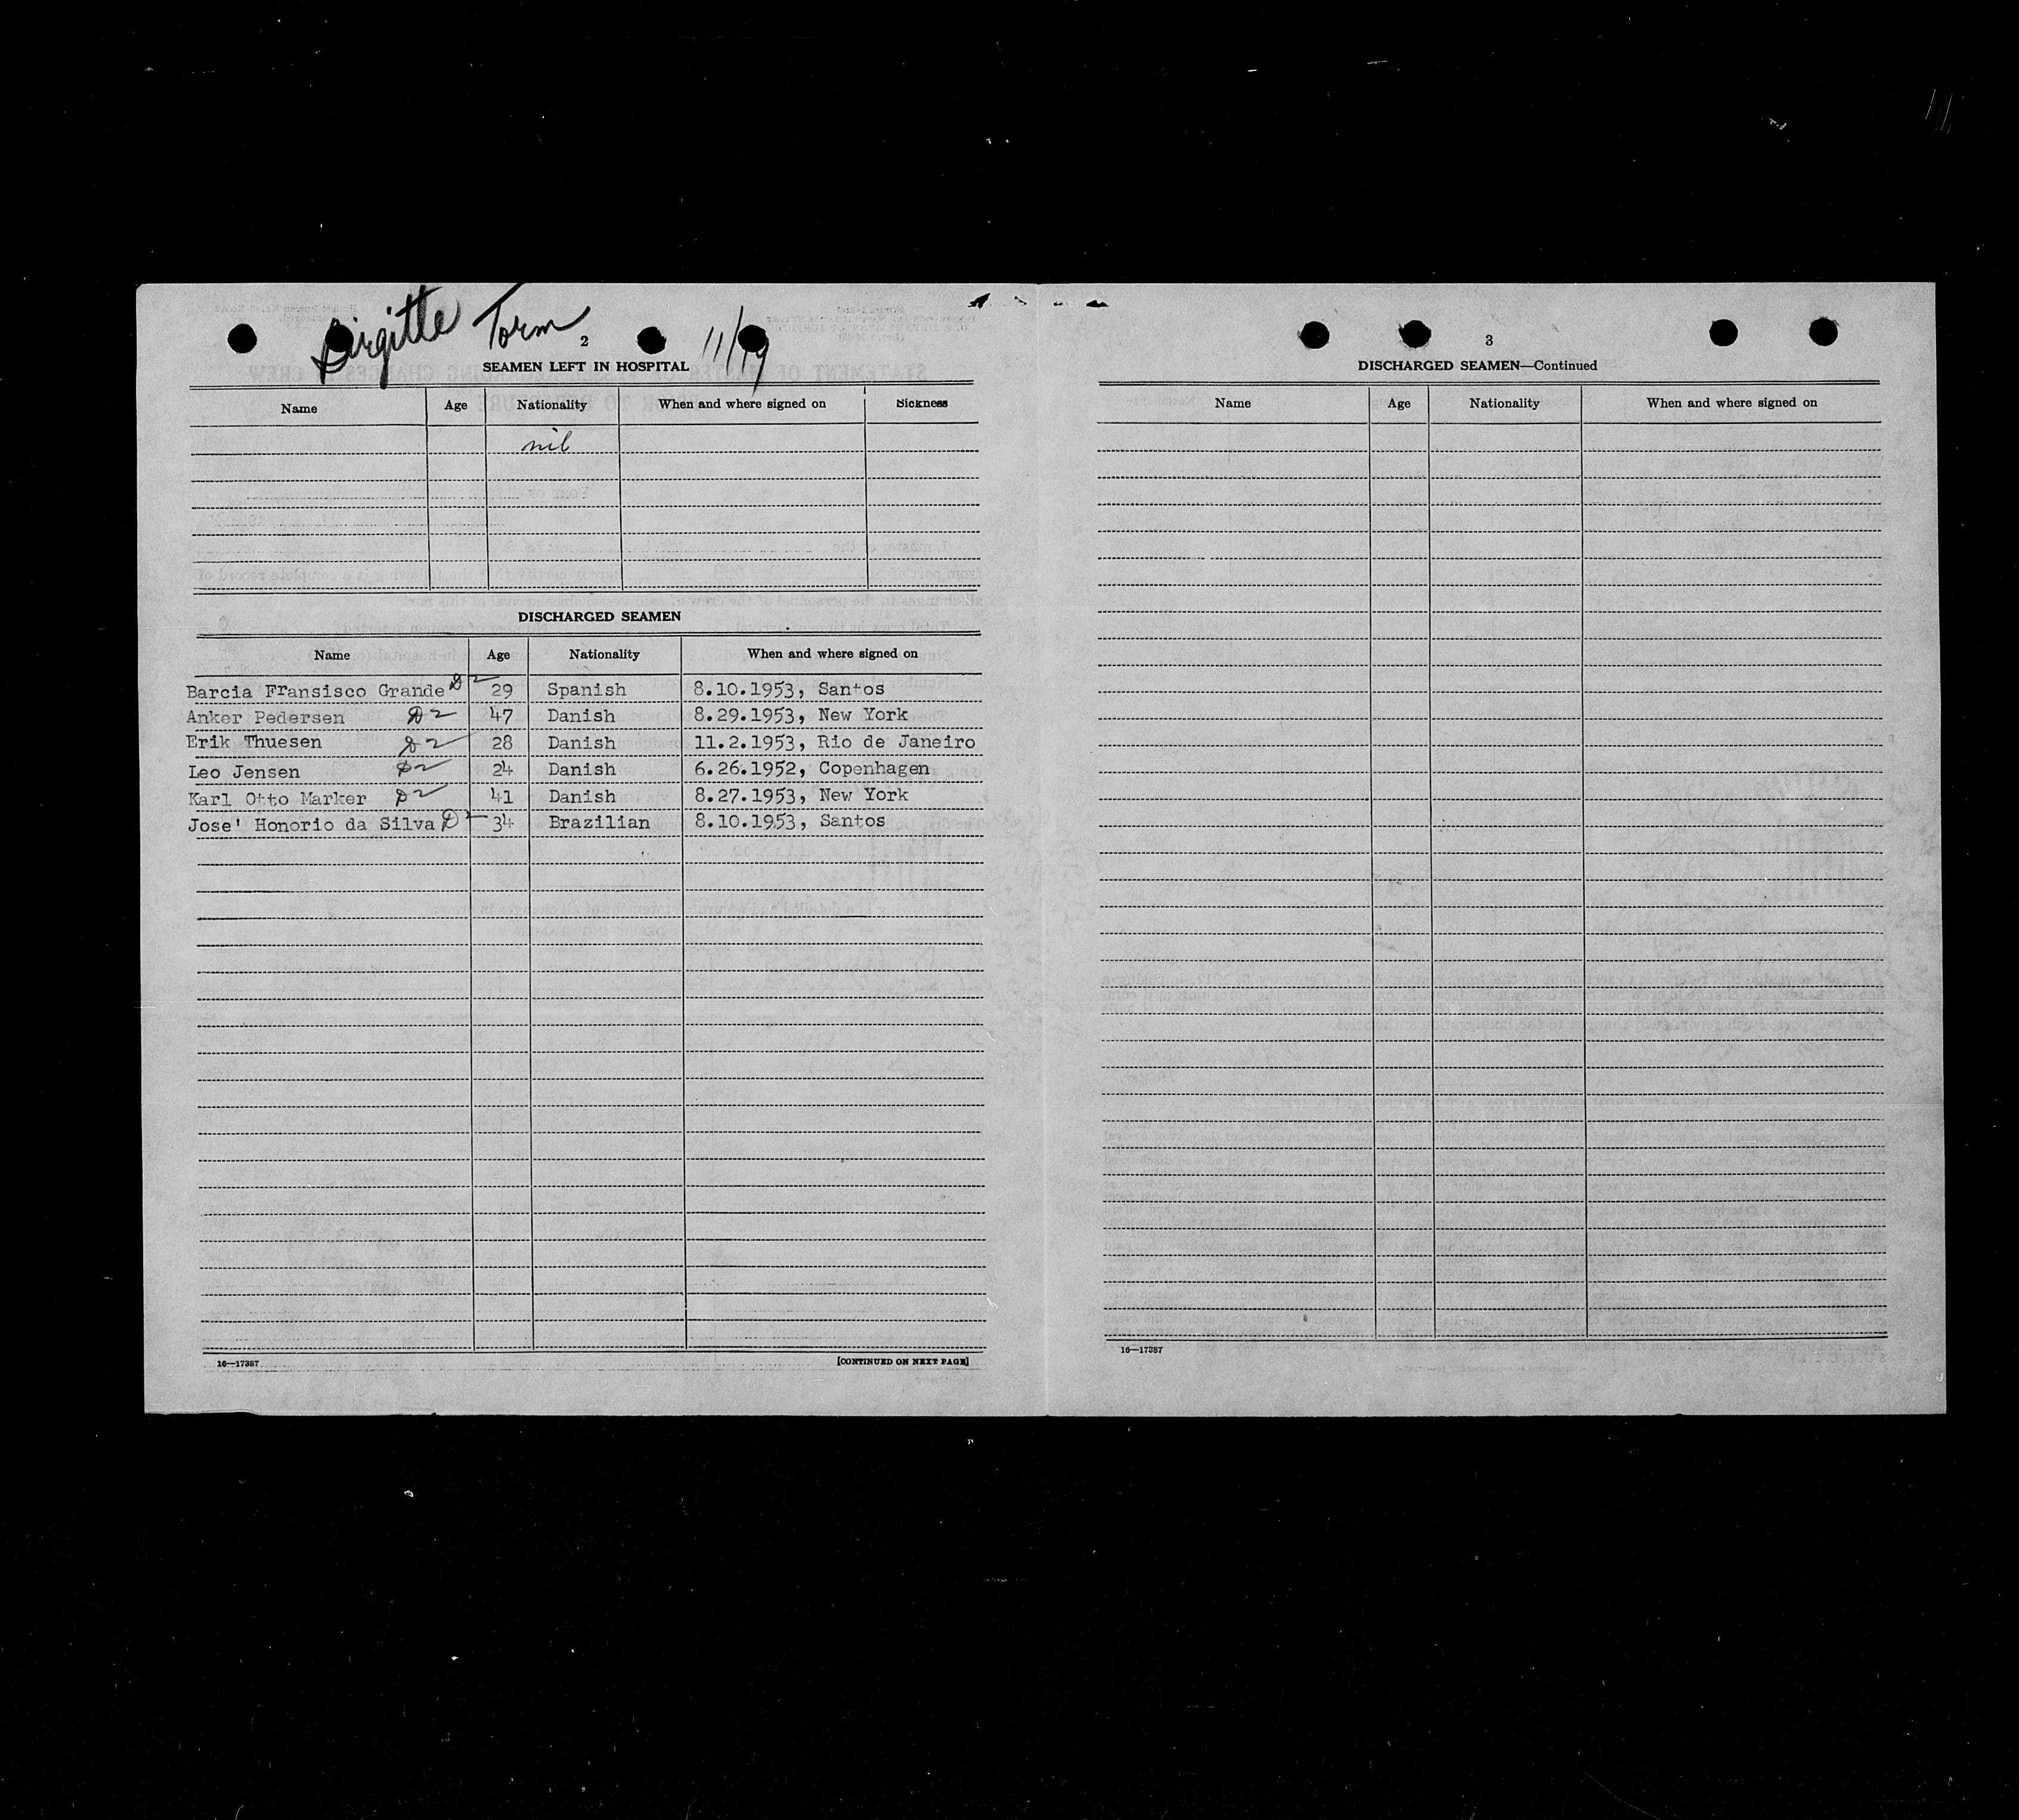 Birgitte Torm 11/19
2
SEAMEN LEFT IN HOSPITAL
Name Age Nationality When and where signed on Sickness
nil
DISCHARGED SEAMEN
Name Age Nationality When and where signed on
Barcia Fransisco Grande D2 29 Spanish 8.10.1953, Santos
Anker Pedersen D2 47 Danish 8.29.1953, New York
Erik Thuesen D2 28 Danish 11.2.1953, Rio de Janeiro
Leo Jensen D2 24 Danish 6.26.1952, Copenhagen
Karl Otto Marker D2 41 Danish 8.27.1953, New York
Jose' Honorio da Silva D2 34 Brazilian 8.10.1953, Santos
16—17387 [CONTINUED ON NEXT PAGE]
3
DISCHARGED SEAMEN—Continued
Name Age Nationality When and where signed on
16—17387